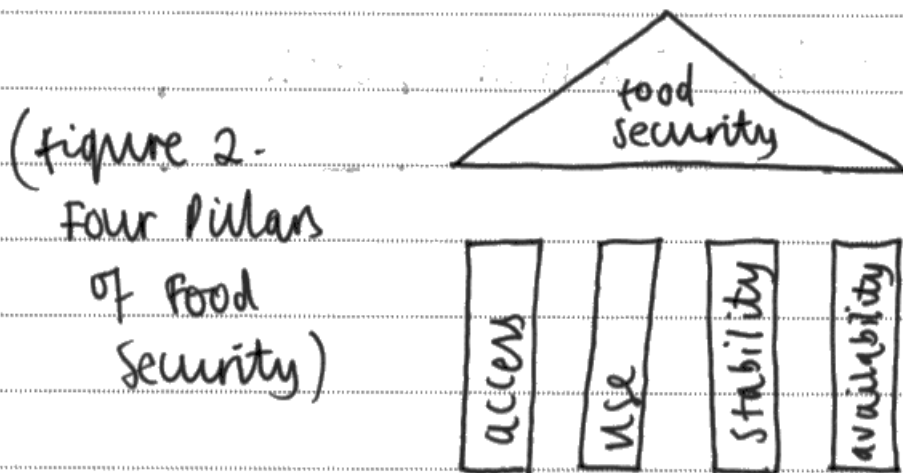 (Figure 2.
Four Pillars
of Food
Security)
food
security
access
use
stability
availability